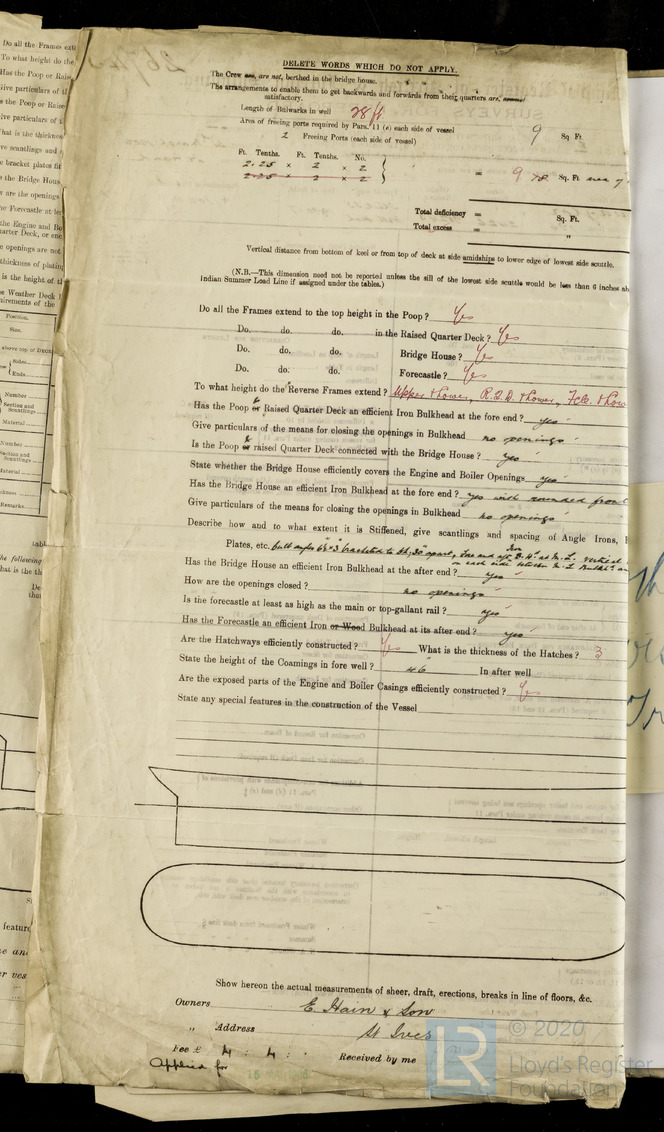 DELETE WORDS WHICH DO NOT APPLY.
The Crew are, are not, berthed in the bridge house.
The arrangements to enable them to get backwards and forwards from their quarters are,
satisfactory.
Length of Bulwarks in well 28 ft
Area of freeing ports required by Para. 11 (e) each side of vessel 9 Sq Ft.
2 Freeing Ports (each side of vessel)
Ft. Tenths. Ft. Tenths. No.
2.25 × 2 × 2
2.25 × 2 × 2 = 9 Sq. Ft.
Total deficiency = Sq. Ft.
Total excess = "
Vertical distance from bottom of keel or from top of deck at side amidships to lower edge of lowest side scuttle.
(N.B.—This dimension need not be reported unless the sill of the lowest side scuttle would be less than 6 inches ab
Indian Summer Load Line if assigned under the tables.)
Do all the Frames extend to the top height in the Poop? Yes
Do. do. do. in the Raised Quarter Deck? Yes
Do. do. do. Bridge House? Yes
Do. do. do. Forecastle? Yes
To what height do the Reverse Frames extend? Upper & Lower, R.Q.D. & Lower, Fcle. & Low
Has the Poop or Raised Quarter Deck an efficient Iron Bulkhead at the fore end? yes
Give particulars of the means for closing the openings in Bulkhead no openings
Is the Poop or raised Quarter Deck connected with the Bridge House? yes
State whether the Bridge House efficiently covers the Engine and Boiler Openings yes
Has the Bridge House an efficient Iron Bulkhead at the fore end? yes with rounded front
Give particulars of the means for closing the openings in Bulkhead no openings
Describe how and to what extent it is Stiffened, give scantlings and spacing of Angle Irons,
Plates, etc.
Has the Bridge House an efficient Iron Bulkhead at the after end? yes
How are the openings closed? no openings
Is the forecastle at least as high as the main or top-gallant rail? yes
Has the Forecastle an efficient Iron or Wood Bulkhead at its after end? yes
Are the Hatchways efficiently constructed? Yes What is the thickness of the Hatches? 3
State the height of the Coamings in fore well? 46" In after well
Are the exposed parts of the Engine and Boiler Casings efficiently constructed? Yes
State any special features in the construction of the Vessel
Show hereon the actual measurements of sheer, draft, erections, breaks in line of floors, &c.
Owners E. Hain & Son
" Address St Ives
Fee £ 4 : 4 : Received by me
Applied for
LR © 2020
Lloyd's Register
Foundation